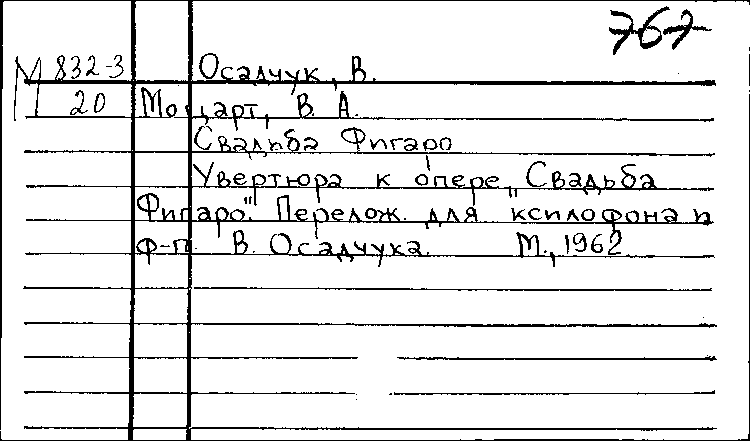 767
М 832-3 Осадчук, В.
20 Моцарт, В. А.
Свадьба Фигаро
Увертюра к опере „Свадьба
Фигаро". Перелож. для ксилофона и
ф-п. В. Осадчука. М., 1962